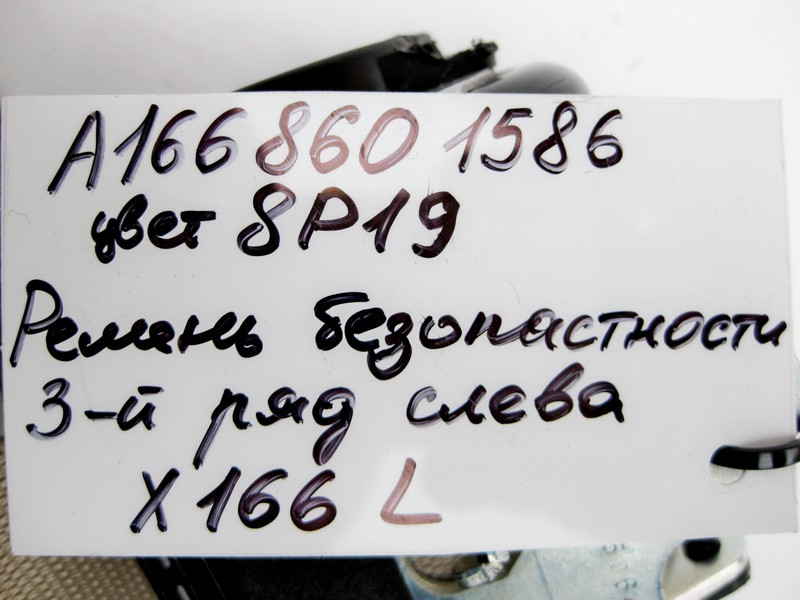 A166 860 1586
цвет 8P19
Ремень безопастности
3-й ряд слева
X166 L